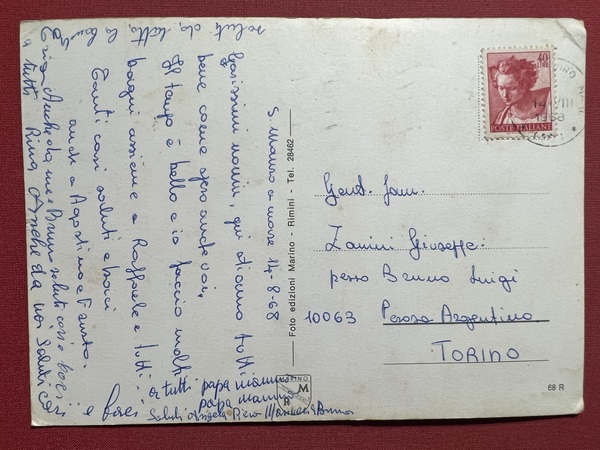 S. Mauro a mare 14-8-68
Carissimi nonni, qui stiamo tutti
bene come spero anche voi,
Il tempo è bello e io faccio molti
bagni assieme a Raffaele e tutti
Tanti cari saluti e baci
anche a Agostino e Fausto.
Anche da me Bruno saluti cari e baci
a tutti Rina Anche da noi saluti cari
e baci a tutti papà mamma
papà mamma
Saluti Angela Piero Bruno
saluti da tutta la
Foto edizioni Marino - Rimini - Tel. 28462
MARINO
M
R
40
POSTE ITALIANE
14 VIII
1968
Gent. fam.
Zanini Giuseppe.
presso Bruno Luigi
10063 Perosa Argentina
TORINO
68 R